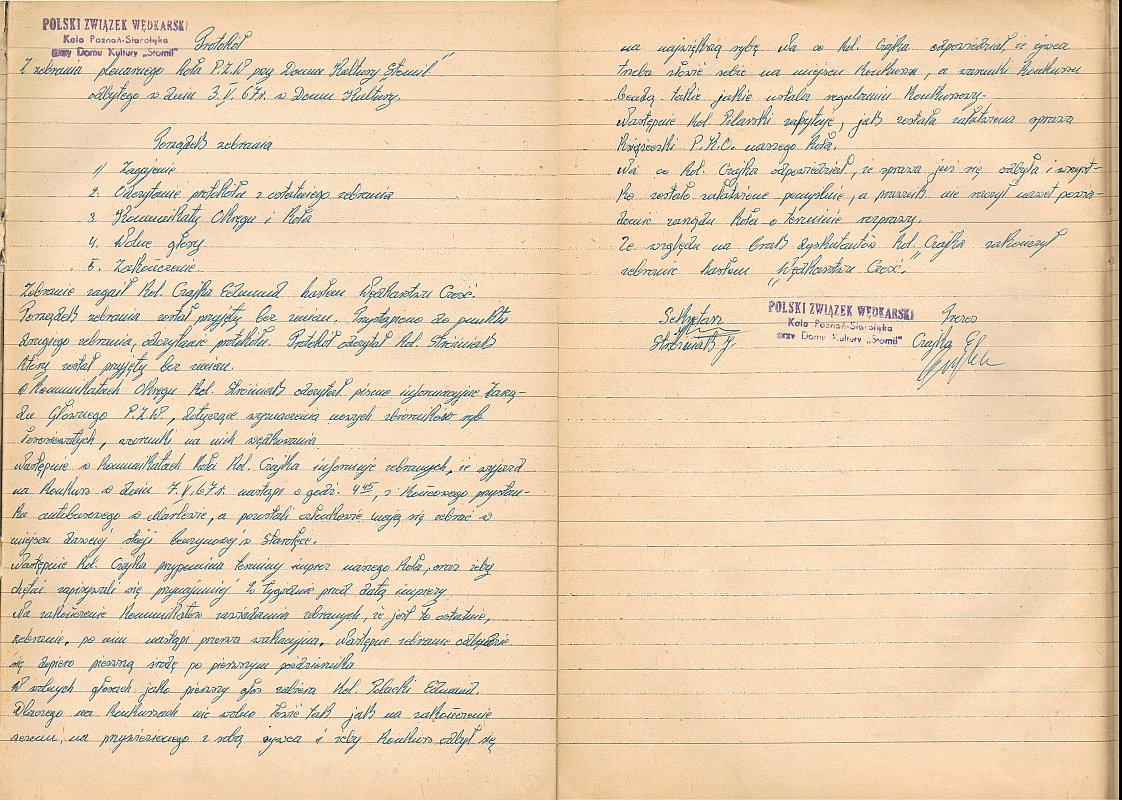 POLSKI ZWIĄZEK WĘDKARSKI
Koło Poznań-Starołęka
przy Domu Kultury „Stomil"
Protokół
Z zebrania plenarnego Koła P.Z.W przy Domu Kultury „Stomil"
odbytego w dniu 3.V.67r. w Domu Kultury.
Porządek zebrania
1) Zagajenie
2. Odczytanie protokołu z ostatniego zebrania
3. Komunikaty Okręgu i Koła
4. Wolne głosy
5. Zakończenie.
Zebranie zagaił Kol. Czajka Edmund hasłem Wędkarstwu Cześć.
Porządek zebrania został przyjęty bez zmian. Przystąpiono do punktu
drugiego zebrania, odczytanie protokółu. Protokół odczytał Kol. Stróżniak
który został przyjęty bez zmian.
W Komunikatach Okręgu Kol. Stróżniak odczytał pismo informacyjne Zarzą-
du Głównego P.Z.W., dotyczące wyznaczenia nowych zbiorników ryb
łososiowatych, warunki na nich wędkowania
Następnie w Komunikatach Koła Kol. Czajka informuje zebranych, że wyjazd
na Konkurs w dniu 7.V.67r. nastąpi o godz. 4⁴⁵, z końcowego przystan-
ku autobusowego w Marlewie, a pozostali członkowie mają się zebrać w
miejscu dawnej stacji benzynowej w Starołęce.
Następnie Kol. Czajka przypomina terminy imprez naszego Koła, oraz żeby
chętni zapisywali się przynajmniej 2 tygodnie przed datą imprezy
Na zakończenie Komunikatów zawiadamia zebranych, że jest to ostatnie,
zebranie, po czym nastąpi przerwa wakacyjna. Następne zebranie odbędzie
się dopiero pierwszą środę po pierwszym października
W wolnych głosach jako pierwszy głos zabiera Kol. Polacki Edward.
Dlaczego na Konkursach nie wolno łowić tak jak na zakończenie
sezonu, na przywiezionego z sobą żywca i żeby Konkurs odbył się
na największą rybę. Na co Kol. Czajka odpowiedział, że żywca
trzeba łowić sobie na miejscu Konkursu, a warunki Konkursu
będą takie jakie ustala regulamin Konkursowy.
Następnie Kol. Pilarski zapytuje, jak została załatwiona sprawa
Książeczki P.K.O. naszego Koła.
Na co Kol. Czajka odpowiedział, że sprawa już się odbyła i wszyst-
ko zostało załatwione pomyślnie, a prawnik nie raczył nawet powia-
domić zarządu Koła o terminie rozprawy.
Ze względu na brak dyskutantów Kol. Czajka zakończył
zebranie hasłem „Wędkarstwu Cześć."
Sekretarz
Stróżniak J.
POLSKI ZWIĄZEK WĘDKARSKI
Koło Poznań-Starołęka
przy Domu Kultury „Stomil"
Prezes
Czajka E